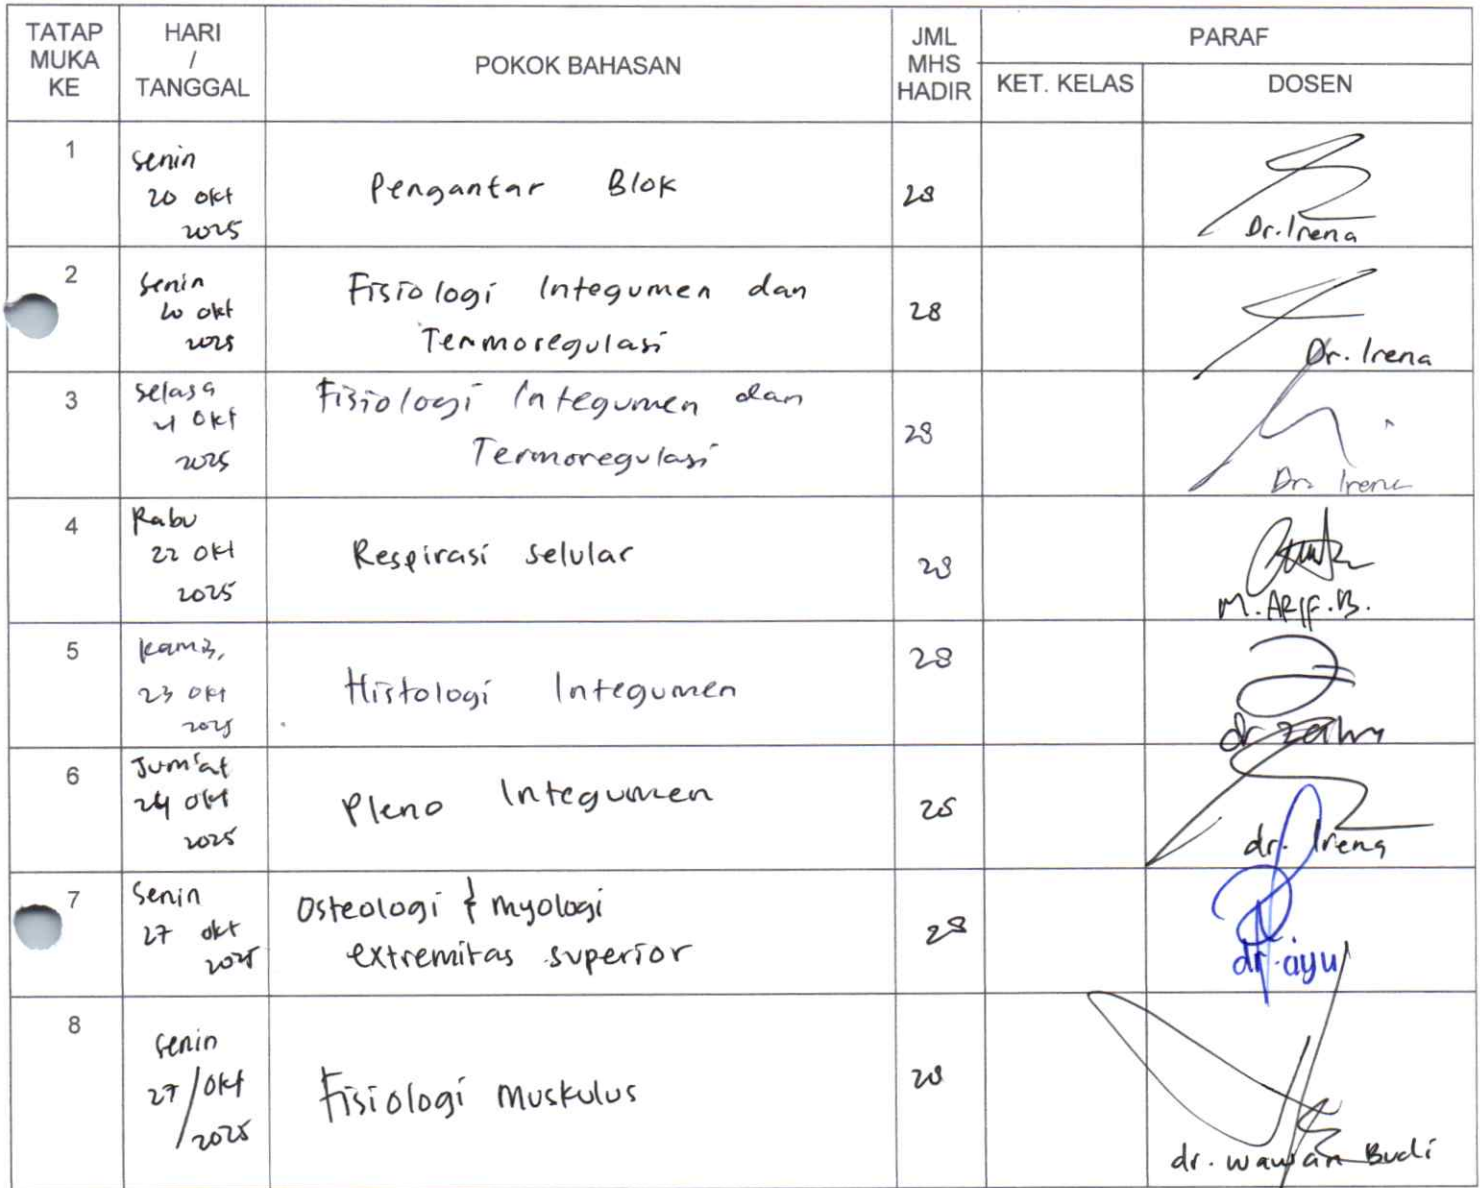 TATAP MUKA KE HARI / TANGGAL POKOK BAHASAN JML MHS HADIR PARAF
KET. KELAS DOSEN
1 Senin 20 Okt 2025 Pengantar Blok 28 Dr. Irena
2 Senin 20 Okt 2025 Fisiologi Integumen dan Termoregulasi 28 Dr. Irena
3 Selasa 21 Okt 2025 Fisiologi Integumen dan Termoregulasi 28 Dr. Irena
4 Rabu 22 Okt 2025 Respirasi selular 28 M. ARIF. B.
5 Kamis, 23 Okt 2025 Histologi Integumen 28 dr
6 Jum'at 24 Okt 2025 Pleno Integumen 28 dr. Irena
7 Senin 27 Okt 2025 Osteologi & myologi extremitas superior 28 dr. ayu
8 Senin 27/Okt/2025 Fisiologi Muskulus 28 dr. Wawan Budi